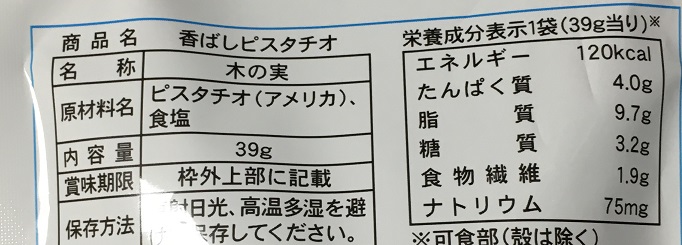 商品名 香ばしピスタチオ
名称 木の実
原材料名 ピスタチオ(アメリカ)、
食塩
内容量 39g
賞味期限 枠外上部に記載
保存方法 射日光、高温多湿を避
保存してください。
栄養成分表示1袋(39g当り)※
エネルギー 120kcal
たんぱく質 4.0g
脂質 9.7g
糖質 3.2g
食物繊維 1.9g
ナトリウム 75mg
※可食部(殻は除く)